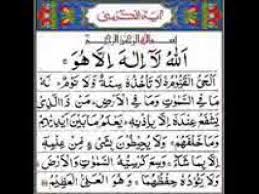 آية الكرسي
بسم الله الرحمن الرحيم
اَللّٰهُ لَآ اِلٰهَ اِلَّا هُوَ ۚ
اَلْحَیُّ الْقَیُّوْمُ ۚ لَا تَاْخُذُهٗ سِنَةٌ وَّلَا نَوْمٌ ؕ لَهٗ
مَا فِی السَّمٰوٰتِ وَمَا فِی الْاَرْضِ ؕ مَنْ ذَا الَّذِیْ
یَشْفَعُ عِنْدَهٗۤ اِلَّا بِاِذْنِهٖ ؕ یَعْلَمُ مَا بَیْنَ اَیْدِیْهِمْ
وَمَا خَلْفَهُمْ ۚ وَلَا یُحِیْطُوْنَ بِشَیْءٍ مِّنْ عِلْمِهٖۤ
اِلَّا بِمَا شَآءَ ۚ وَسِعَ كُرْسِیُّهُ السَّمٰوٰتِ وَالْاَرْضَ ۚ
وَلَا یَـُٔوْدُهٗ حِفْظُهُمَا ۚ وَهُوَ الْعَلِیُّ الْعَظِیْمُ